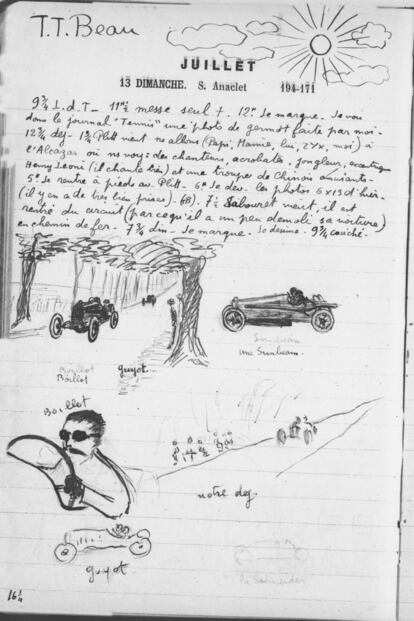 T.T. Beau
JUILLET
13 DIMANCHE. S. Anaclet 194-171
9 ¾ L.d.T- 11 h ½ messe seul +. 12 h Je marque. Je vois
dans le journal "Tennis" une photo de germot faite par moi-
12 ¾ dej- 1 ¾ Plitt vient ns allons (Papi, Mamie, lui, Zyx, moi) à
l'Alcazar où ns voy: des chanteurs, acrobates, jongleurs,
Henry Leoni (il chante bien) et une troupe de Chinois amusants-
5 h Je rentre à pieds av. Plitt- 6 h Je dev. les photos 6x13 d'hier.
(il y en a de très bien prises). 7 ½ Sabouret vient, il est
rentré du circuit (parce qu'il a un peu demoli sa voiture)
en chemin de fer. 7 ¾ din- Je marque. Je dessine. 9 ¾ couché.
Sunbeam
Boillot guyot. une Sunbeam
Boillot
notre dej-
guyot.
16 ¼